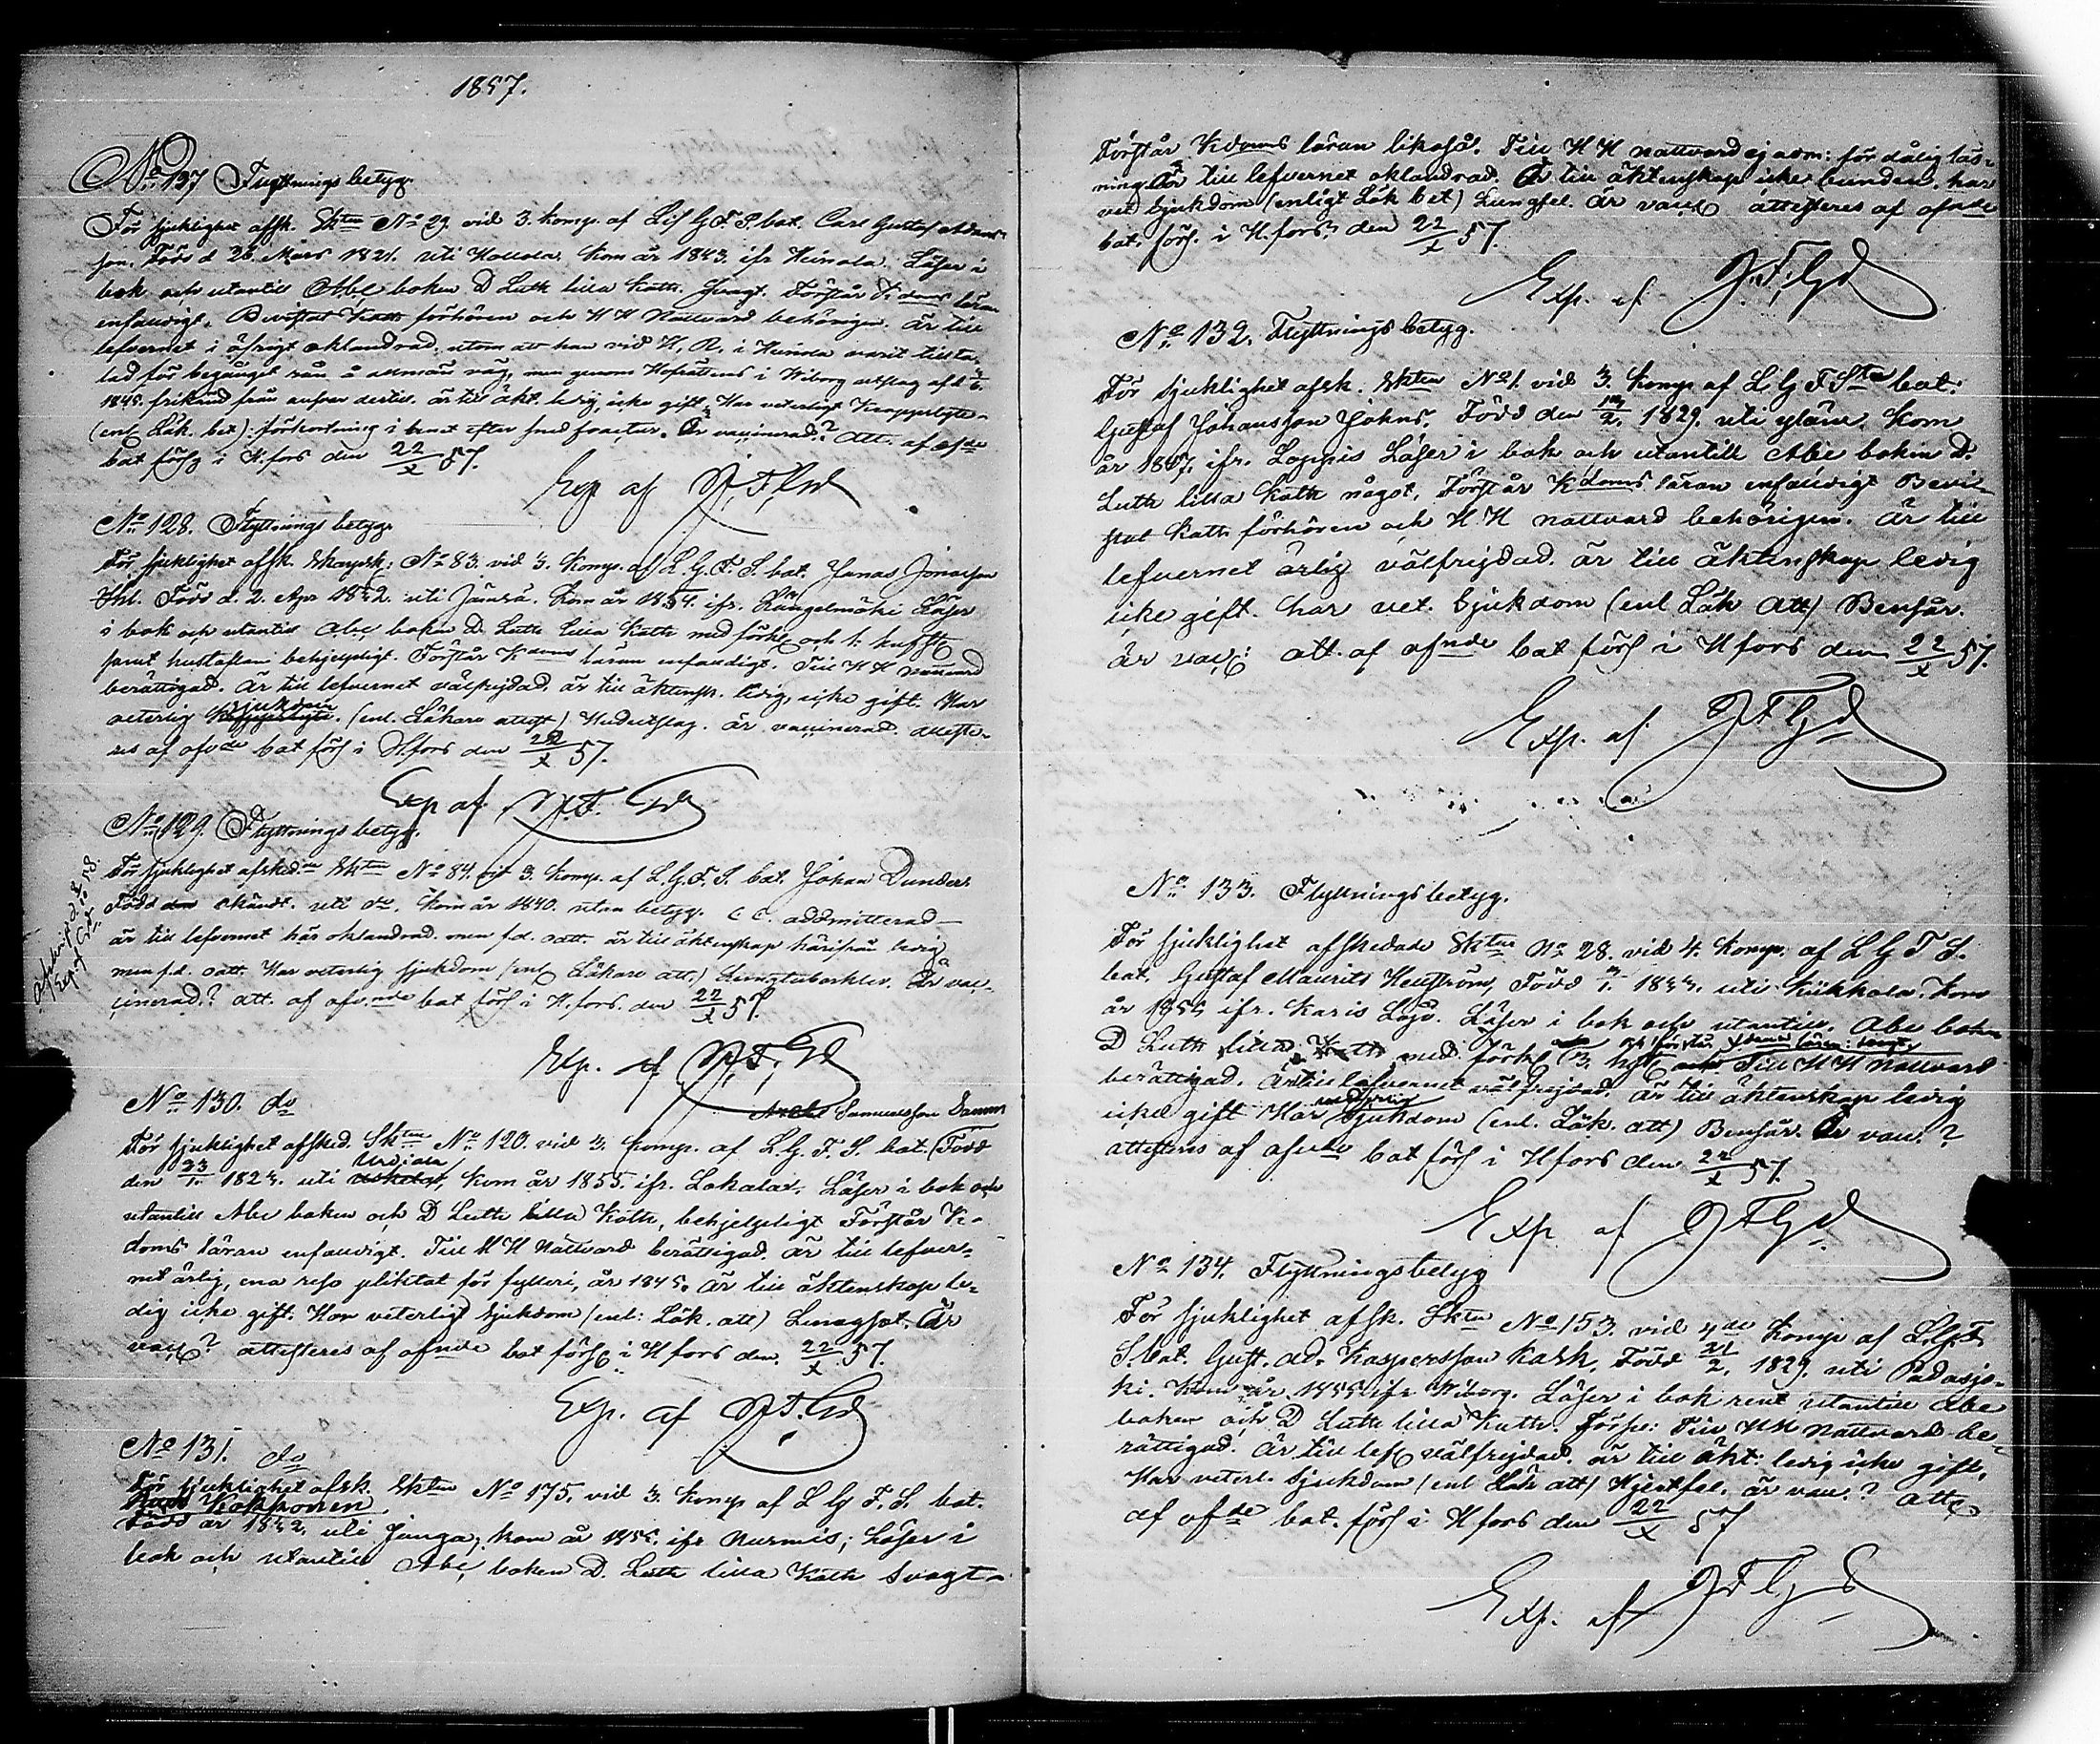 1857.
No 137 Flyttnings betyg.
För sjuklighet afsk. Sktn No 29. vid 3. Komp. af Lif G. F. S. bat. Carl Gustaf Adams-
son. Född d 26. Mars 1821. uti Hollola. Kom år 1843. ifr Heinola. Läser i
bok och utantill Abc boken D Luth lilla Kath. svagt. Förstår K.doms läran
enfaldigt. Bevistat Kath förhören och H H Nattvard behörigen. Är till
lefvernet i öfrigt oklandrad, utom att han vid H. R. i Heinola varit tillta-
lad för begånget rån å allmän väg, men genom Hofrättens i Wiborg utslag af d
1845. frikänd från ansvar dertill. är till äkt. ledig, icke gift. Har veterligt Kroppslyte
(enl Läk. bet): förkortning i benet efter fractur. Är vaccinerad? Att. af ofde
bat förs i H.fors den 22/X 57.
Exp af J. F. Gd
No 128. Flyttnings betyg.
För sjuklighet afsk. Skarpsk: No 83. vid 3. Komp. af L. G. F. S. bat. Jonas Jonasson
Född d. 2. Apr 1832. uti Jämsä. Kom år 1854. ifr. Kangelmäki Läser
i bok och utantill Abc boken D. Luth lilla Kath med förkl och
samt hustaflan behjelpligt. Förstår K doms läran enfaldigt. Till H H Nattvard
berättigad. Är till lefvernet välfrejdad. är till äktensk. ledig, icke gift. Har
veterlig sjukdom (enl. Läkare attest) Hudutslag. är vaccinerad. atteste-
res af ofvde bat förs i Hfors den 22/X 57.
Exp af J. F. Gd
No 129. Flyttnings betyg.
För sjuklighet afsked. Sktn No 84. vid 3. Komp. af L. G. F. S. bat. Johan Dunder
Född den okändt. uti do. Kom år 1840. utan betyg. C C. addmitterad
är till lefvernet här oklandrad. men f.d. är till äktenskap härifrån ledig
men f.d. Har veterlig sjukdom (enl Läkare att.) Lungtuberkler. Är vac-
cinerad? att. af ofv.nde bat förs i H.fors. den 22/X 57.
Exp. af J. F. Gd
No 130. do
Samuelsson Damm
För sjuklighet afsked. Sktn No 120. vid 3. Komp. af L. G. F. S. bat. Född
den 23/1. 1823. uti Urdiala Kom år 1855. ifr. Lokalax. Läser i bok och
utantill Abc boken och D Luth lilla Kath, behjelpligt Förstår K-
doms läran enfaldigt. Till H H Nattvard berättigad. är till lefver-
net ärlig, ena resa pliktat för fylleri, år 1845. är till äktenskap le-
dig icke gift. Har veterligt sjukdom (enl: Läk. att) Lungsot. Är
vacc? attesteres af ofnde bat förs i H fors den. 22/X 57.
Exp. af J. F. Gd
No 131. do
För sjuklighet afsk. Sktn No 175. vid 3. Komp af L G F. S. bat.
Kokkonen
Född år 1832. uti Juuga, kom år 1855. ifr Nurmis; Läser i
bok och utantill Abc boken D. Luth lilla Kath svagt.
Förstår K.doms läran likaså. Till H H nattvard ej adm: för dålig läs-
ning. Är till lefvernet oklandrad. Är till äktenskap icke bunden, har
vet sjukdom (enligt Läk bet) Lungfel. är vacc attesteres af ofnde
bat. förs. i H.fors. den 22/X 57.
Exp. af J. F. Gd
No 132. Flyttnings betyg.
För sjuklighet afsk. Sktn No 1. vid 3. Komp af L G F S bat.
Gustaf Johansson Johns. Född den /2. 1829. uti Yläne. Kom
år 1847. ifr. Loppis Läser i bok och utantill Abc boken D.
Luth lilla Kath något, Förstår K doms läran enfaldigt Bevi-
stat Kath förhören och H. H nattvard behörigen. är till
lefvernet ärlig välfrejdad. är till äktenskap ledig
icke gift. har vet. sjukdom (enl Läk Att) Bensår.
är vacc: att. af ofnde bat förs i H fors den 22/X 57.
Exp. af J F Gd
No 133. Flyttningsbetyg.
För sjuklighet afskedade Sktn No 28. vid 4. Komp. af L G F S.
bat. Gustaf Maurits Hellström, Född 1833. uti Kiikkala. Kom
år 1855 ifr. Karis Lojo. Läser i bok och utantill. Abc boken
D Luth lilla Kath med förkl Till H H Nattvard
berättigad. är till lefvernet välfrejdad. är till äktenskap ledig
icke gift Har sjukdom (enl. Läk. att) Bensår. Är vacc.?
attesteres af ofvnde bat förs i Hfors den 22/X 57.
Exp af J F Gd
No 134. Flyttningsbetyg
För sjuklighet afsk. Sktn No 153. vid 4de Komp af L. G. F.
S. bat. Gust. Ad. Kaspersson Kask, Född 21/2. 1829. uti Padasjo-
ki. Kom år 1855 ifr Wiborg. Läser i bok rent utantill Abc
boken och D Luth lilla Kath. Till HH Nattvard be-
rättigad. är till lef välfrejdad. är till äkt: ledig icke gift.
Har veterl. sjukdom (enl Läk att) Hjertfel. är vacc.? Att
af ofde bat. förs i H fors den 22/X 57
Exp. af J F G d